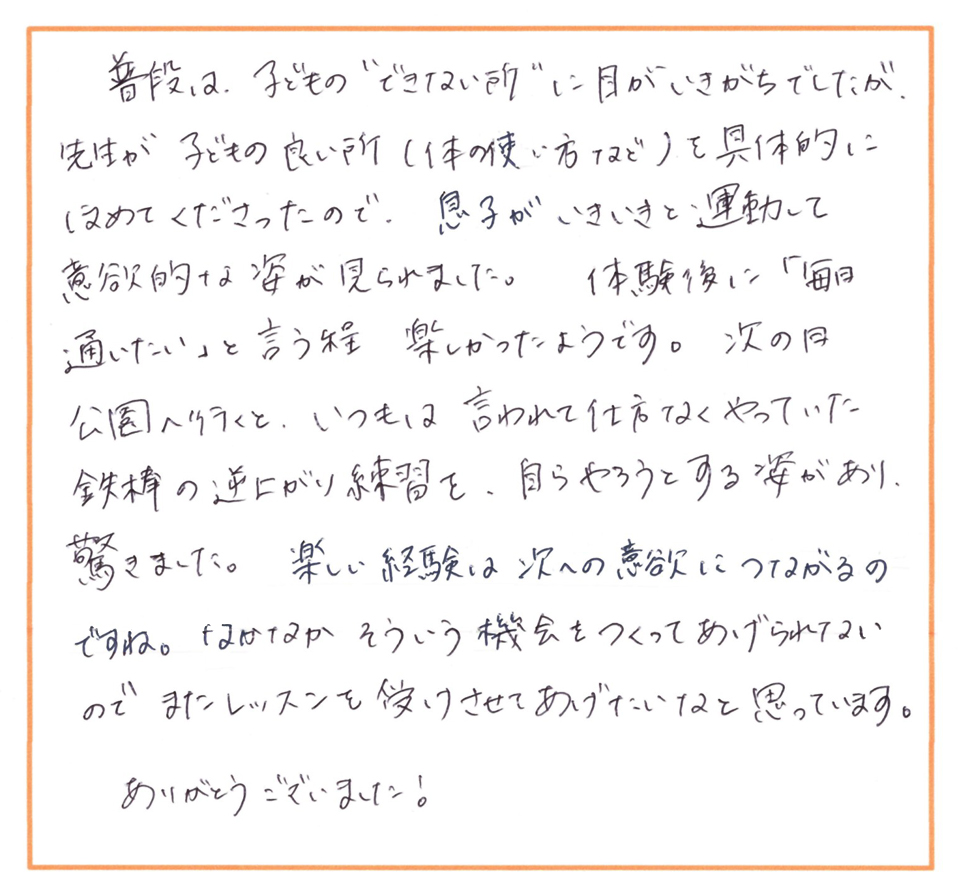 普段は、子どもの“できない所”に目がいきがちでしたが、
先生が 子どもの良い所(体の使い方など)を具体的に
ほめてくださったので、息子が いきいきと運動して
意欲的な姿が見られました。 体験後に「毎日
通いたい」と言う程 楽しかったようです。 次の日
公園へ行くと、いつもは 言われて仕方なくやっていた
鉄棒の逆上がり練習を、自らやろうとする姿があり、
驚きました。 楽しい経験は次への意欲につながるの
ですね。なかなか そういう機会をつくってあげられない
ので またレッスンを受けさせてあげたいなと思っています。
ありがとうございました!